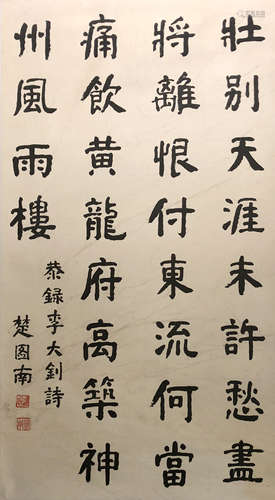 壯別天涯未許愁盡
將離恨付東流何當
痛飲黄龍府高築神
州風雨樓
恭録李大釗詩
楚图南